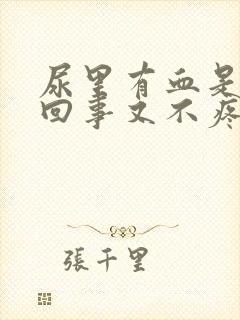 尿里有血是
回事又不疼
張千里